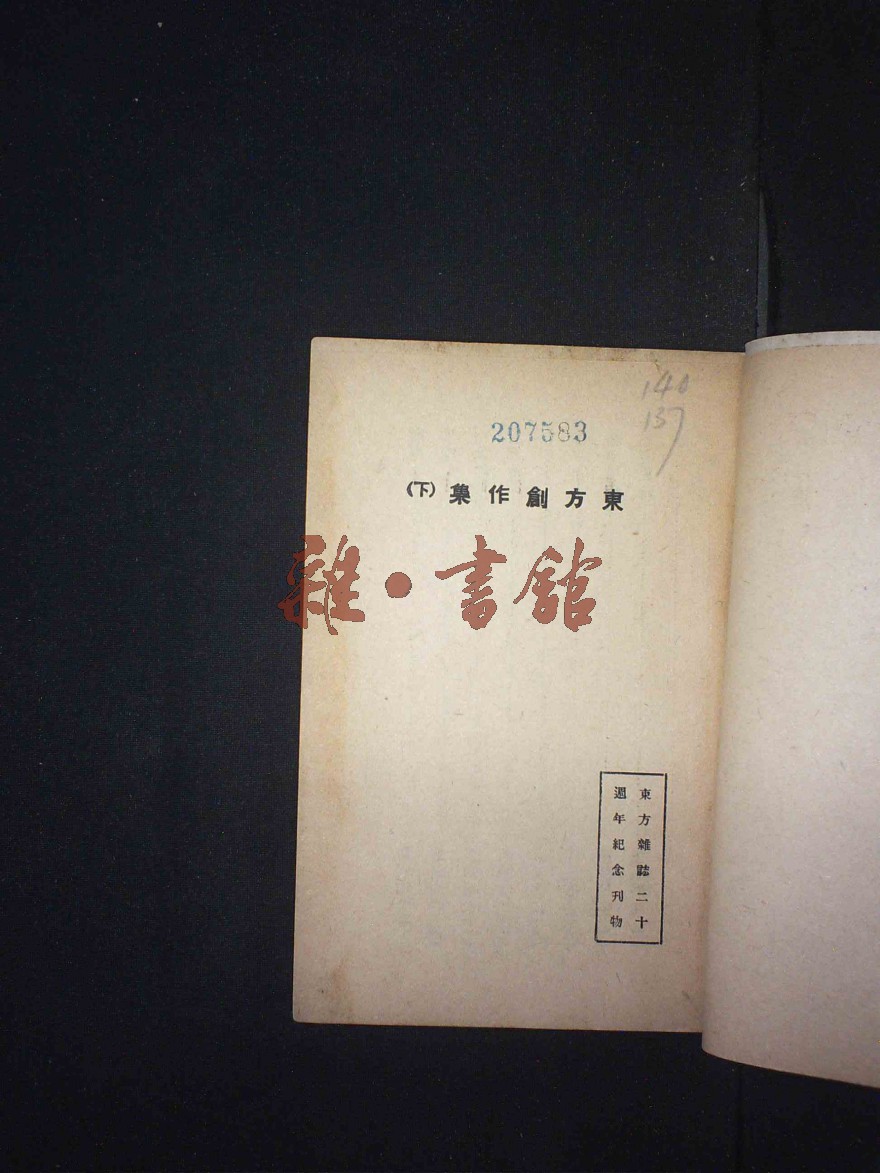 140
137
207583
東方創作集(下)
雜·書館
東方雜誌二十
週年紀念刊物